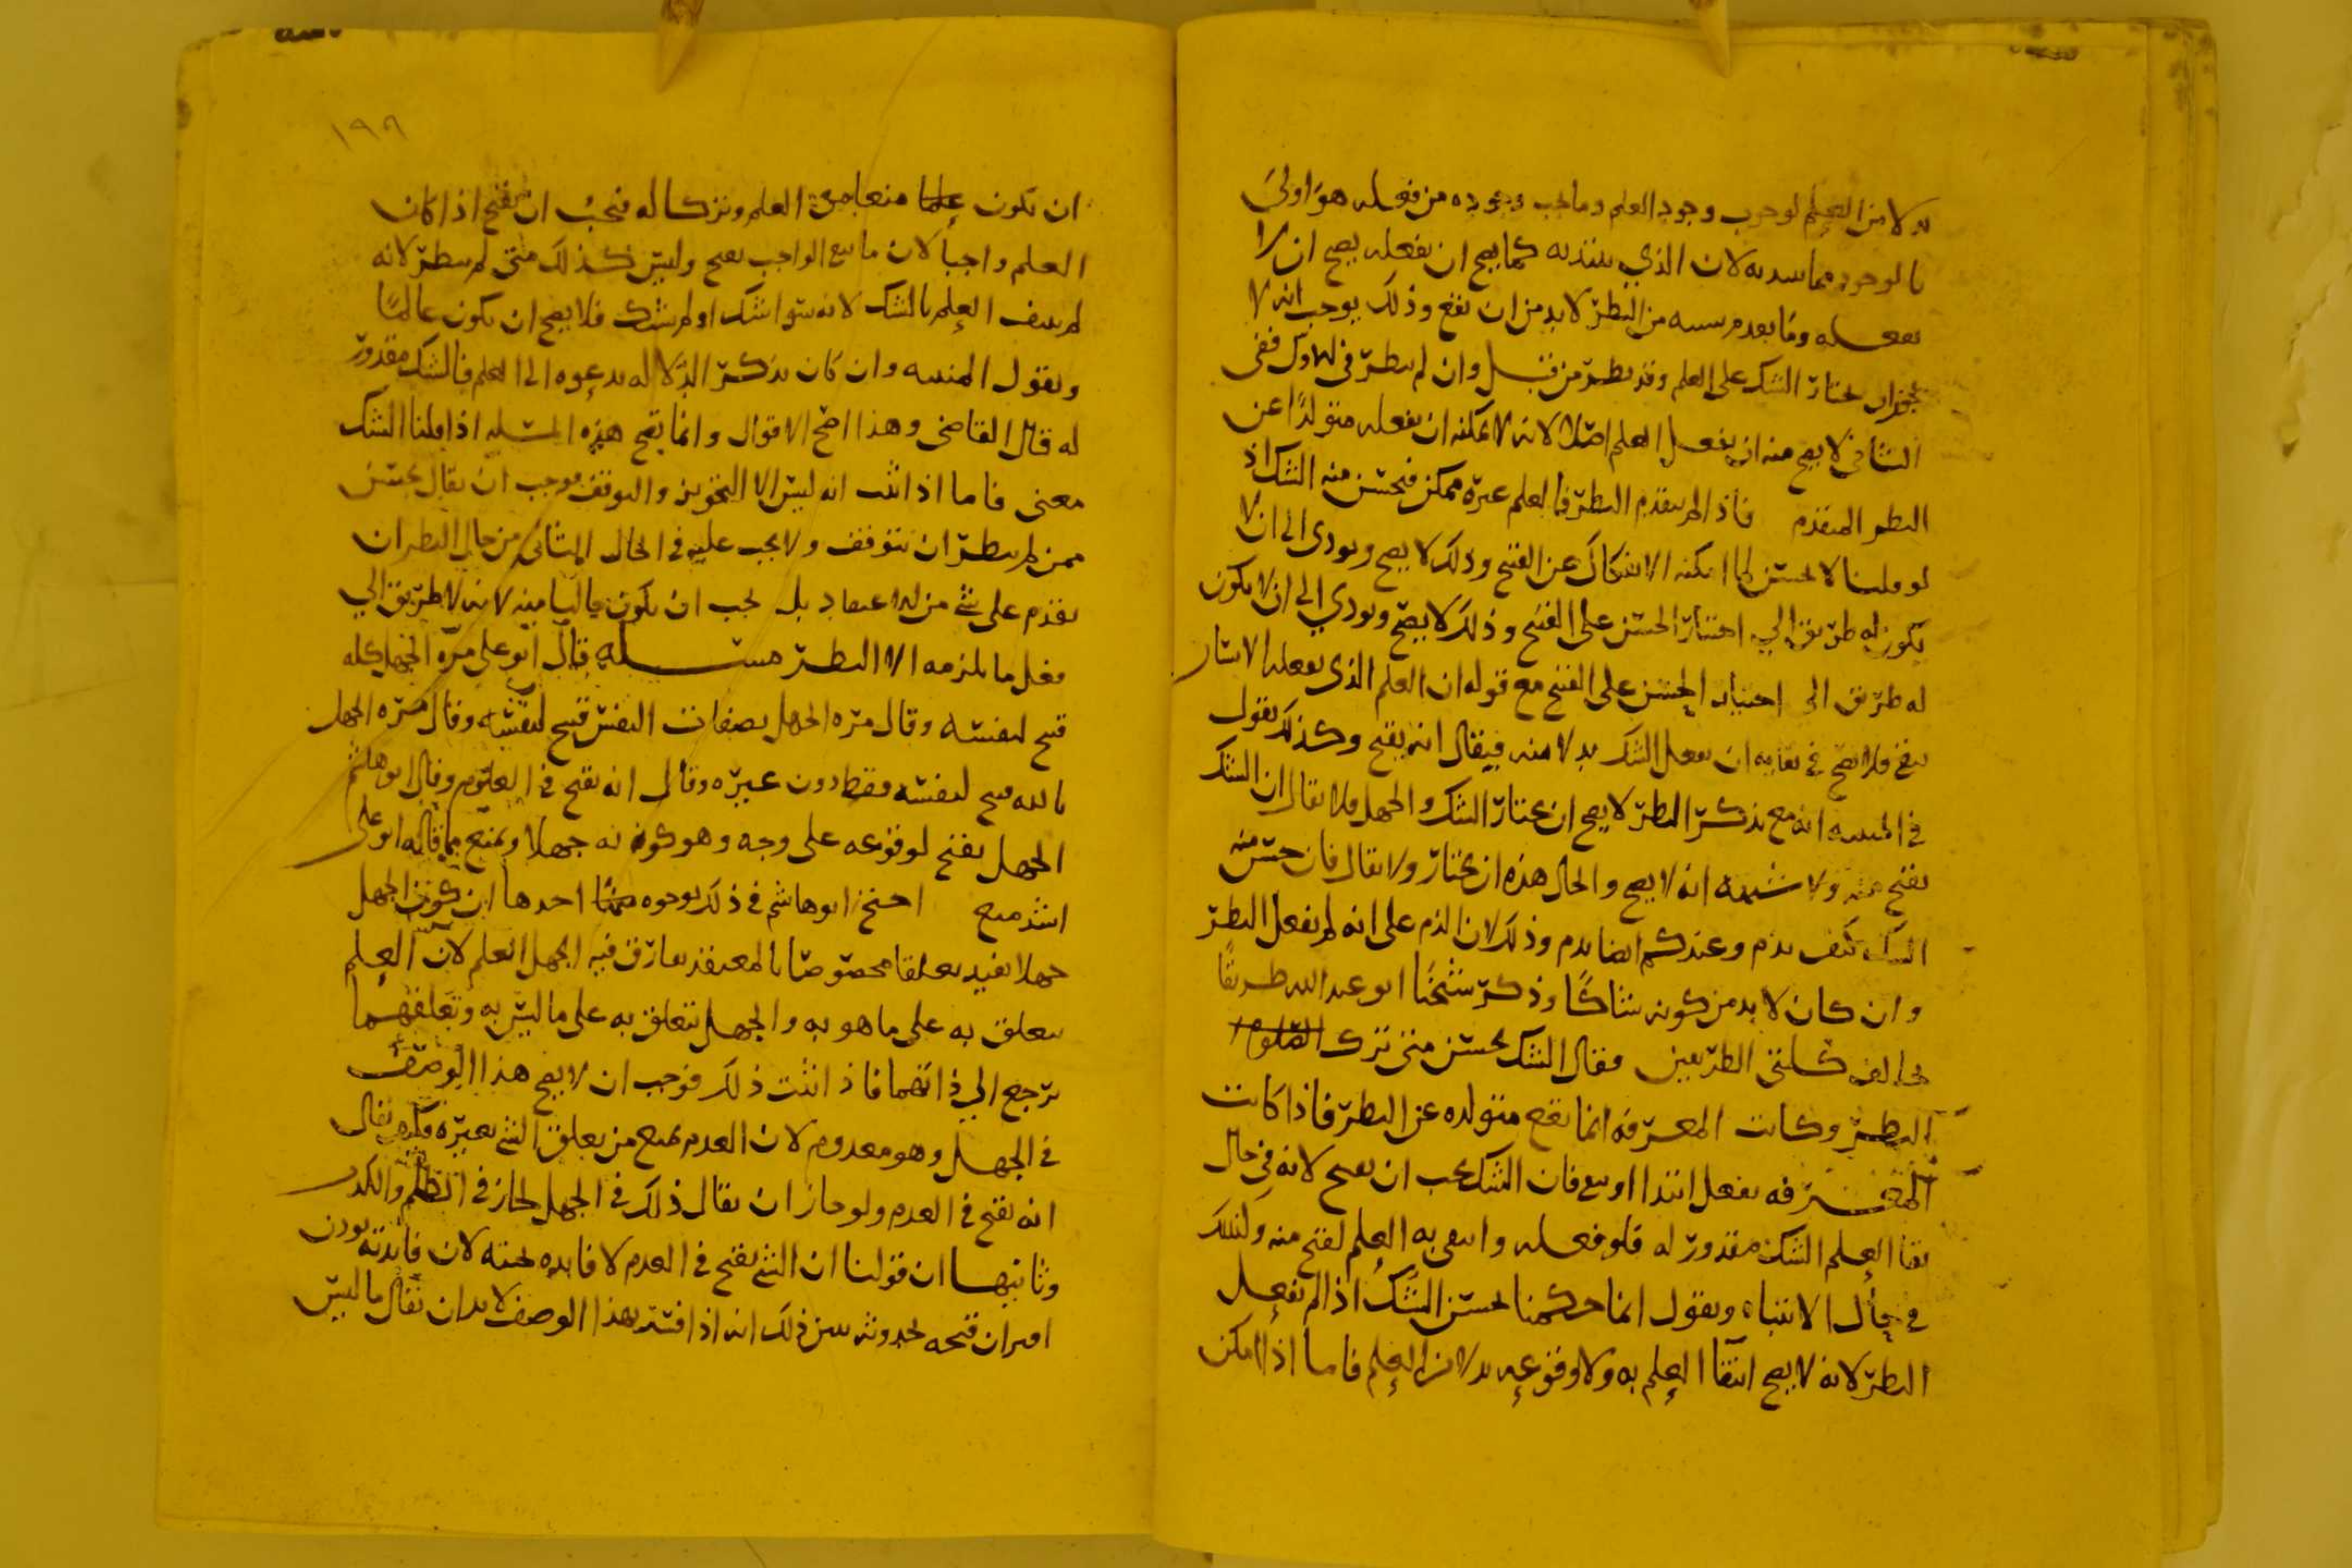 بدلا من العلم لوجوب وجود العلم وما يجب وجوده من فعله هو اولى
بالوجود مما سديه لان الذي يبتديه كما يصح ان يفعله يصح ان لا
يفعله وما بعدم سببه من النظر لا بد من ان يقع وذلك يوجب انه لا
يجوز ان يختار الشك على العلم وقد نظر من قبل وان لم ينظر في الاول ففي
الثاني لا يصح منه ان يفعل العلم اصلا لانه لا يمكنه ان يفعله متولدا عن
النظر المتقدم فاذا لم يتقدم النظر فالعلم غيره ممكن فيحسن منه الشك اذ
لو قلنا لا يحسن لما امكنه الانفكاك عن القبيح وذلك لا يصح ويودي الى ان لا
يكون له طريق الى اختيار الحسن على القبيح وذلك لا يصح ويودي الى ان لا يكون
له طريق الى اختيار الحسن على القبيح مع قوله ان العلم الذي يفعله الانسان
يبقى فلا يصح في بقايه ان يفعل الشك بدلا منه فيقال انه يقبح وكذلك يقول
في المنبه انه مع تذكر النظر لا يصح ان يختار الشك والجهل فلا يقال ان الشك
يقبح منه ولا شبهه انه لا يصح والحال هذه ان يختار ولا يقال فان حسن منه
الشك كيف يذم وعندكم ايضا يذم وذلك لان الذم على انه لم يفعل النظر
وان كان لا بد من كونه شاكا وذكر شيخنا ابو عبد الله طريقا
يخالف كلتى الطريقين فقال الشك يحسن متى ترك
النظر وكانت المعرفه انما تقع متولده عن النظر فاذا كانت
المعرفه تفعل ابتدا او تبقى فان الشك يجب ان يقبح لانه في حال
بقا العلم الشك مقدور له فلو فعله وانتفى به العلم لقبح منه وكذلك
في حال الانتباه ويقول انما حكمنا بحسن الشك اذا لم يفعل
النظر لانه لا يصح انتفا العلم به ولا وقوعه بدلا من العلم فاما اذا امكن
١٩٨
ان تكون علما منعا من العلم وتركا له فيجب ان يقبح اذا كان
العلم واجبا لان ما منع الواجب يقبح وليس كذلك متى لم ينظر لانه
لم ينتف العلم بالشك لانه سوا شك او لم يشك فلا يصح ان يكون عالما
ويقول المنبه وان كان بذكر الدلاله يدعوه الى العلم فالشك مقدور
له قال القاضي وهذا اصح الاقوال وانما يصح هذه المسله اذا قلنا الشك
معنى فاما اذا اثبت انه ليس الا التجويز والتوقف فوجب ان يقال يحسن
ممن لم ينظر ان يتوقف ولا يجب عليه في الحال الثاني من حال النظر ان
يقدم على شي من الاعتقاد بل يجب ان يكون خاليا منه لانه لا طريق الى
فعل ما يلزمه الا النظر مسله قال ابو علي مره الجهل كله
قبيح لنفسه وقال مره الجهل بصفات النفس قبيح لنفسه وقال مره الجهل
بالله قبيح لنفسه فقط دون غيره وقال انه يقبح في العلوم وقال ابو هاشم
الجهل يقبح لوقوعه على وجه وهو كونه جهلا ويمنع مما قاله ابو علي
اشد منع احتج ابو هاشم في ذلك بوجوه احدها ان كون الجهل
جهلا يفيد تعلقا مخصوصا بالمعتقد يفارق فيه الجهل العلم لان العلم
يتعلق به على ما هو به والجهل يتعلق به على ما ليس به وتعلقهما
يرجع الى ذاتهما فاذا اثبت ذلك فوجب ان لا يصح هذا الوصف
في الجهل وهو معدوم لان العدم يمنع من تعلق الشي بغيره فكيف يقال
انه يقبح في العدم ولو جاز ان يقال ذلك في الجهل لجاز في الظلم والكذب
وثانيها ان قولنا ان الشي يقبح في العدم لا فايده تحته لان فايدته تودن
امران قبحه لحدوثه يبين ذلك انه اذا فسر بهذا الوصف لا بد ان يقال ما ليس